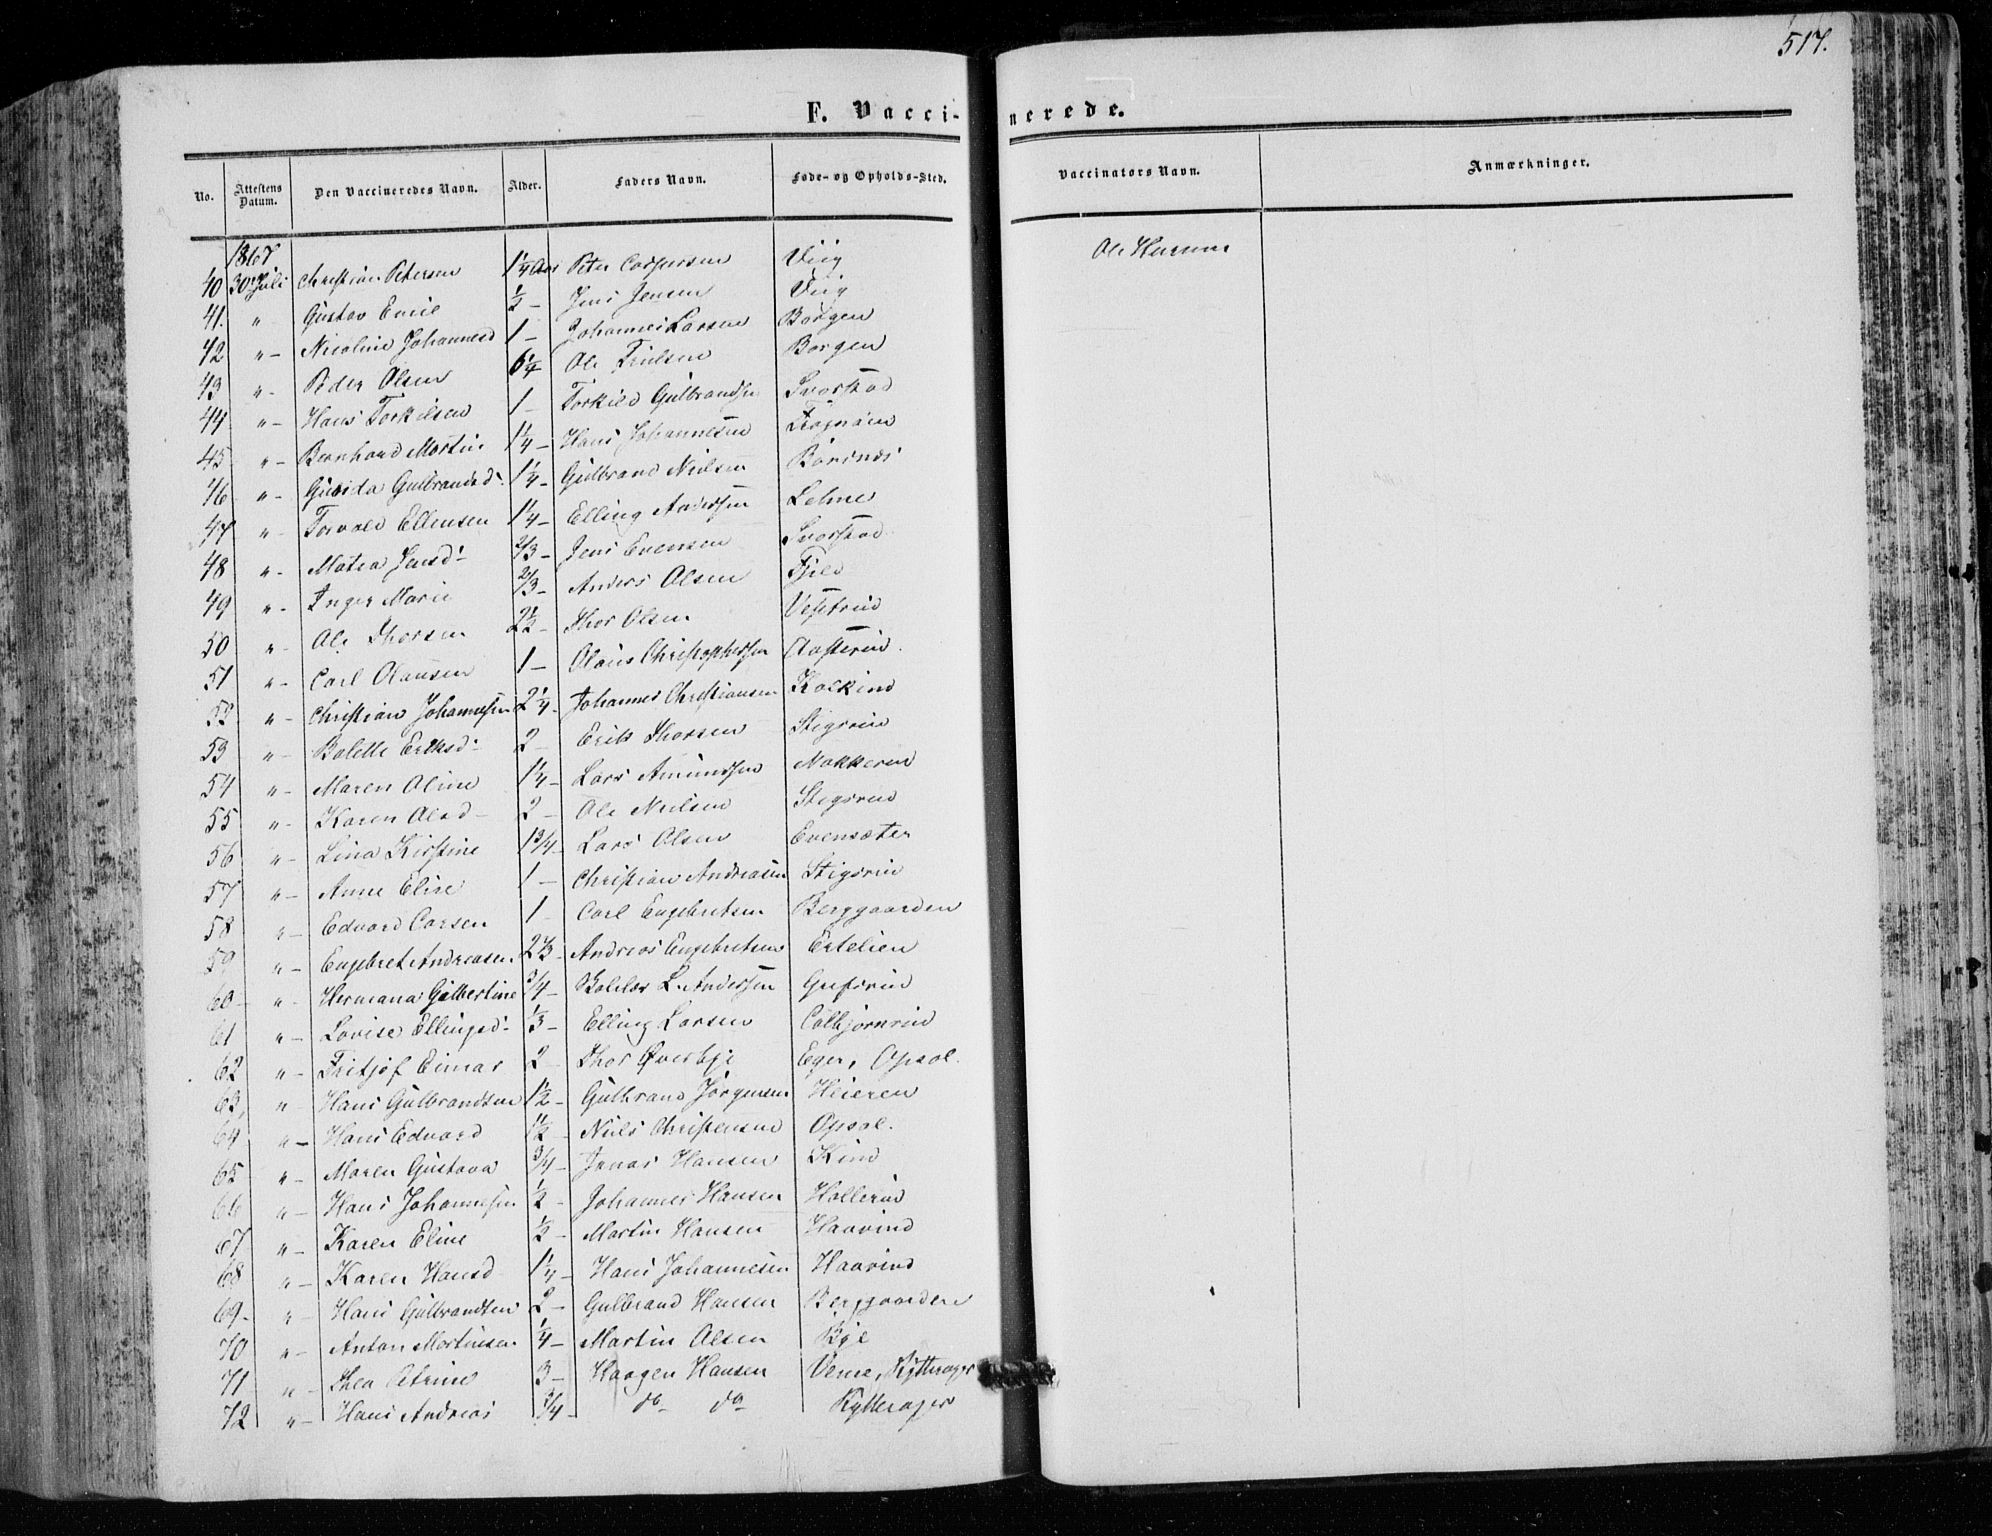 517.
F. Vaccinerede.
No. Attestens Datum. Den Vaccineredes Navn. Alder. Faders Navn. Føde- og Opholds-Sted. Vaccinators Navn. Anmærkninger.
1867
40 30 Juli Christian Petersen 1¼ Aar Peter Caspersen Viig Ole
41. " Gustav Emil ½ - Jens Jensen Viig
42 " - Nicoline Johannesd 1 - Johannes Larsen Borgen
43 " - Peder Olsen 6¼ Ole Borgen
44 " - Hans Torkilsen 1 - Torkild Gulbrandsen Svarstad
45 " - Bernhard Martin 1¼ - Hans Johannesen
46 " - Gulbrandsd: 1¼ - Gulbrand Nielsen
47 " Torvald Ellensen 1¼ - Elling Andersen
48 " - Matea Jensd: 2/3 - Jens Evensen Svarstad
49 " - Inger Marie 2/3 - Anders Olsen Fjeld
50 " - Ole Thorsen 2½ - Thor Olsen
51 " - Carl Olausen 1 - Olaus Christophersen
52 " - Christian Johannesen 2¼ - Johannes Christiansen
53 " - Bolette Eriksd: 2 - Erik Thorsen Stigsrud
54 " - Maren Oline 1¼ - Lars Amundsen
55 " - Karen Olsd - 2 - Ole Nielsen Stigsrud
56 " - Lina Kirstine 1¾ - Lars Olsen Evensæter
57 " - Anne Elise 1 - Christian Andreasen Stigsrud
58 " - Edvard Carsen 1 - Carl Engebretsen Berggaarden
59 " - Engebret Andreasen. 2⅔ - Andreas Engebretsen Ertelien
60 - " - Hermana Gilbertine ¾ - L. Andersen
61 " - Lovise Ellingsd: ⅓ - Elling Larsen Colbjørnrud
62 " - Fritjof Eimar 2 - Thor Øverbye Eger, Opsal.
63, " - Hans Gulbrandsen 1½ - Gulbrand Jørgensen Heieren
64 " - Hans Edvard 1½ - Niels Christensen Opsal.
65 " - Maren Gustava ¾ - Jonas Hansen
66 " - Hans Johannesen ½ - Johannes Hansen Hollerud
67 " - Karen Eline ½ - Martin Hansen Haavind
68 " - Karen Hansd - 1¼ - Hans Johannesen Haavind
69 - " - Hans Gulbrandsen 2 - Gulbrand Hansen Berggaarden
70 " - Anton Martinsen ¼ - Martin Olsen Bye
71 " - Thea Petrine 3 - Haagen Hansen Veme, Rytterager
72 " - Hans Andreas ¾ - do do Rytterager